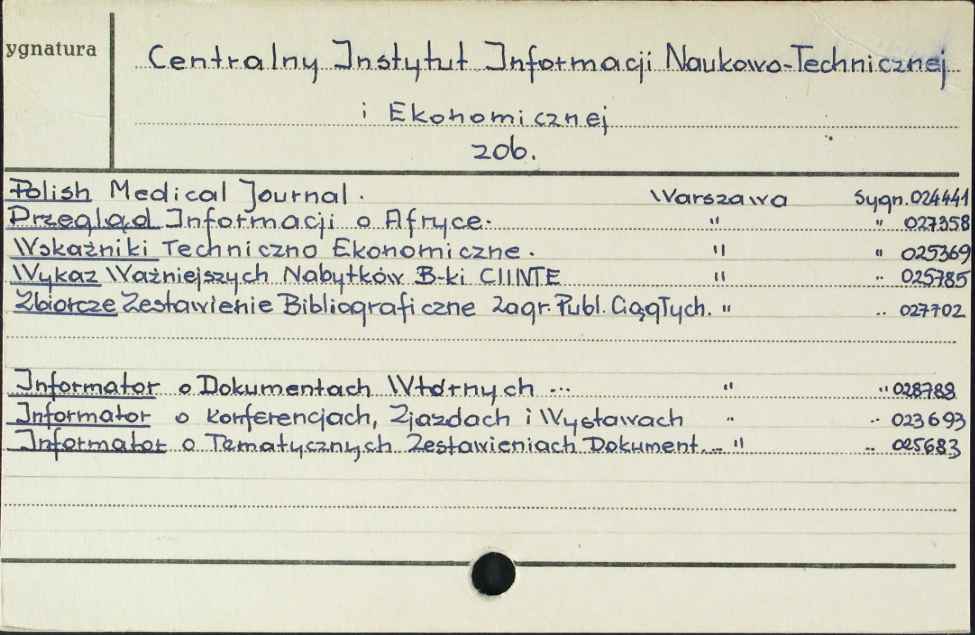 ygnatura
Centralny Instytut Informacji Naukowo-Technicznej
i Ekonomicznej
zob.
Polish Medical Journal. Warszawa Sygn. 024441
Przegląd Informacji o Afryce. " " 027358
Wskaźniki Techniczno Ekonomiczne. " " 025369
Wykaz Ważniejszych Nabytków B-ki CIINTE " " 025785
Zbiorcze Zestawienie Bibliograficzne Zagr. Publ. Ciągłych. " " 027702
Informator o Dokumentach Wtórnych ... " " 028788
Informator o Konferencjach, Zjazdach i Wystawach " " 023693
Informator o Tematycznych Zestawieniach Dokument... " " 025683